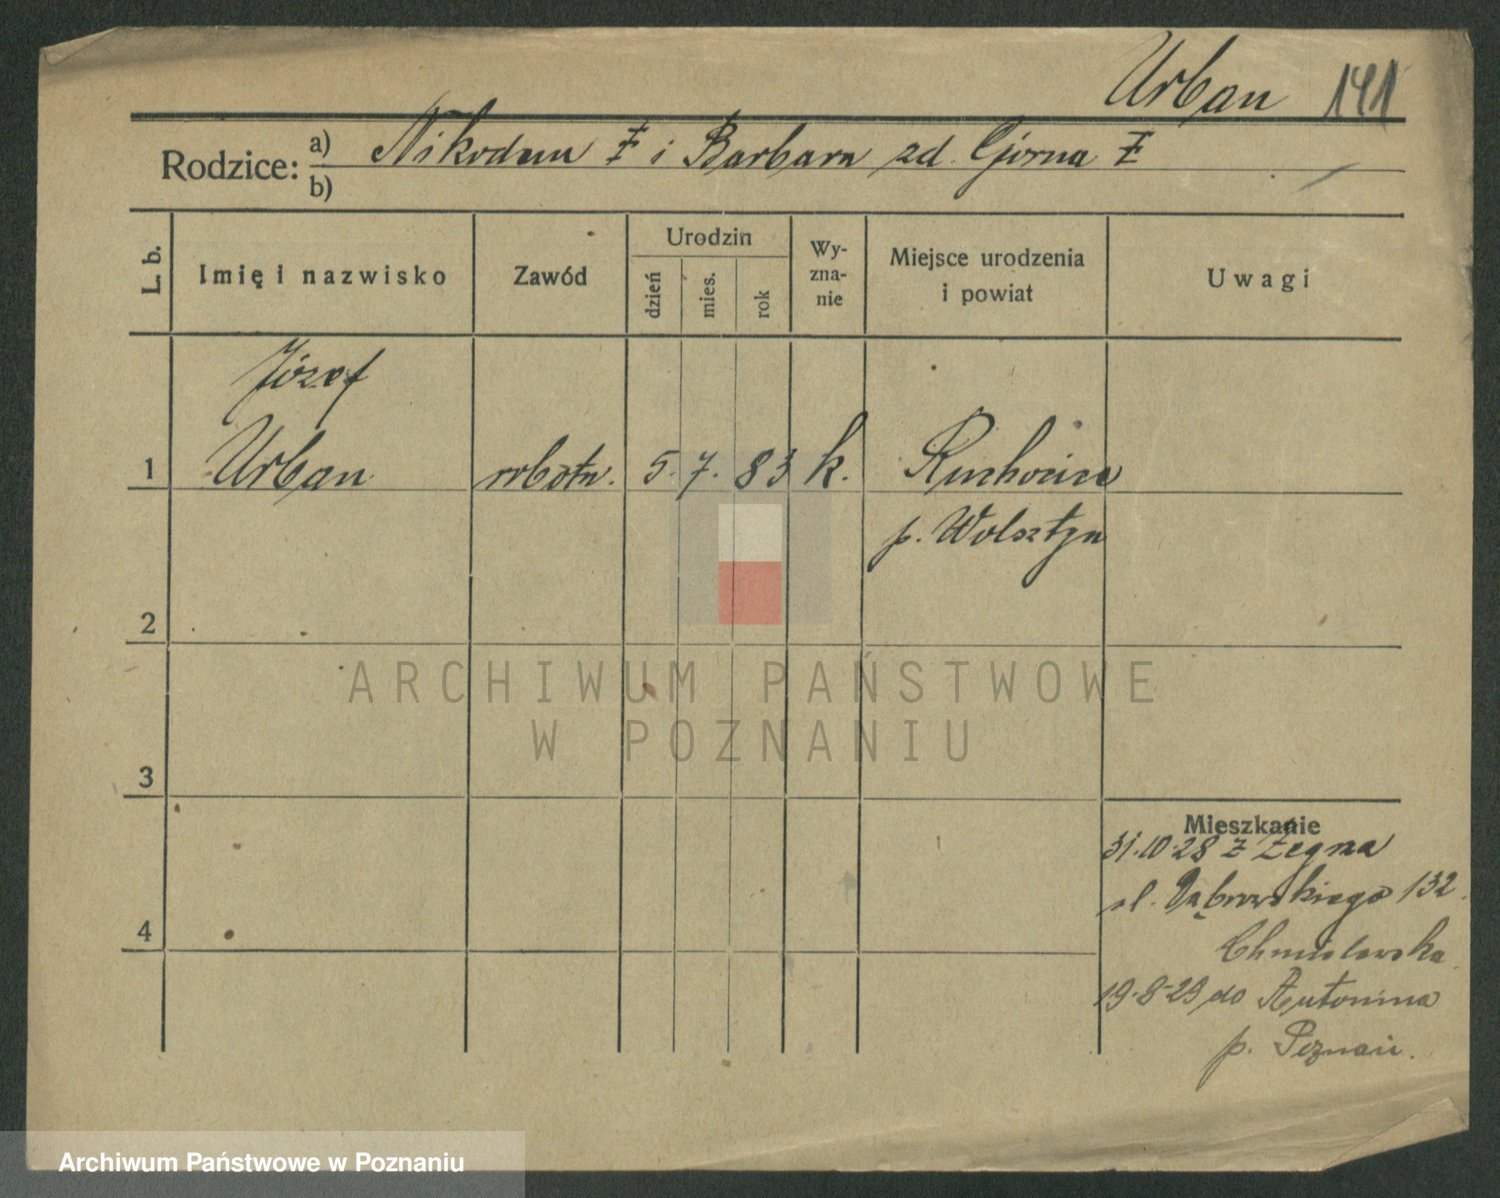 Urban 141
Rodzice: a) Nikodem ‡ i Barbara zd. Górna ‡
b)
L. b.
Imię i nazwisko
Zawód
Urodzin
dzień
mies.
rok
Wy-
zna-
nie
Miejsce urodzenia
i powiat
Uwagi
Józef
1 Urban robotn. 5. 7. 83 k. Ruchocice
p. Wolsztyn
2
ARCHIWUM PAŃSTWOWE
W POZNANIU
3
Mieszkanie
31.10.28 z Żegna
ul. Dąbrowskiego 132
4
19-8-29 do Antonina
p. Poznań.
Archiwum Państwowe w Poznaniu